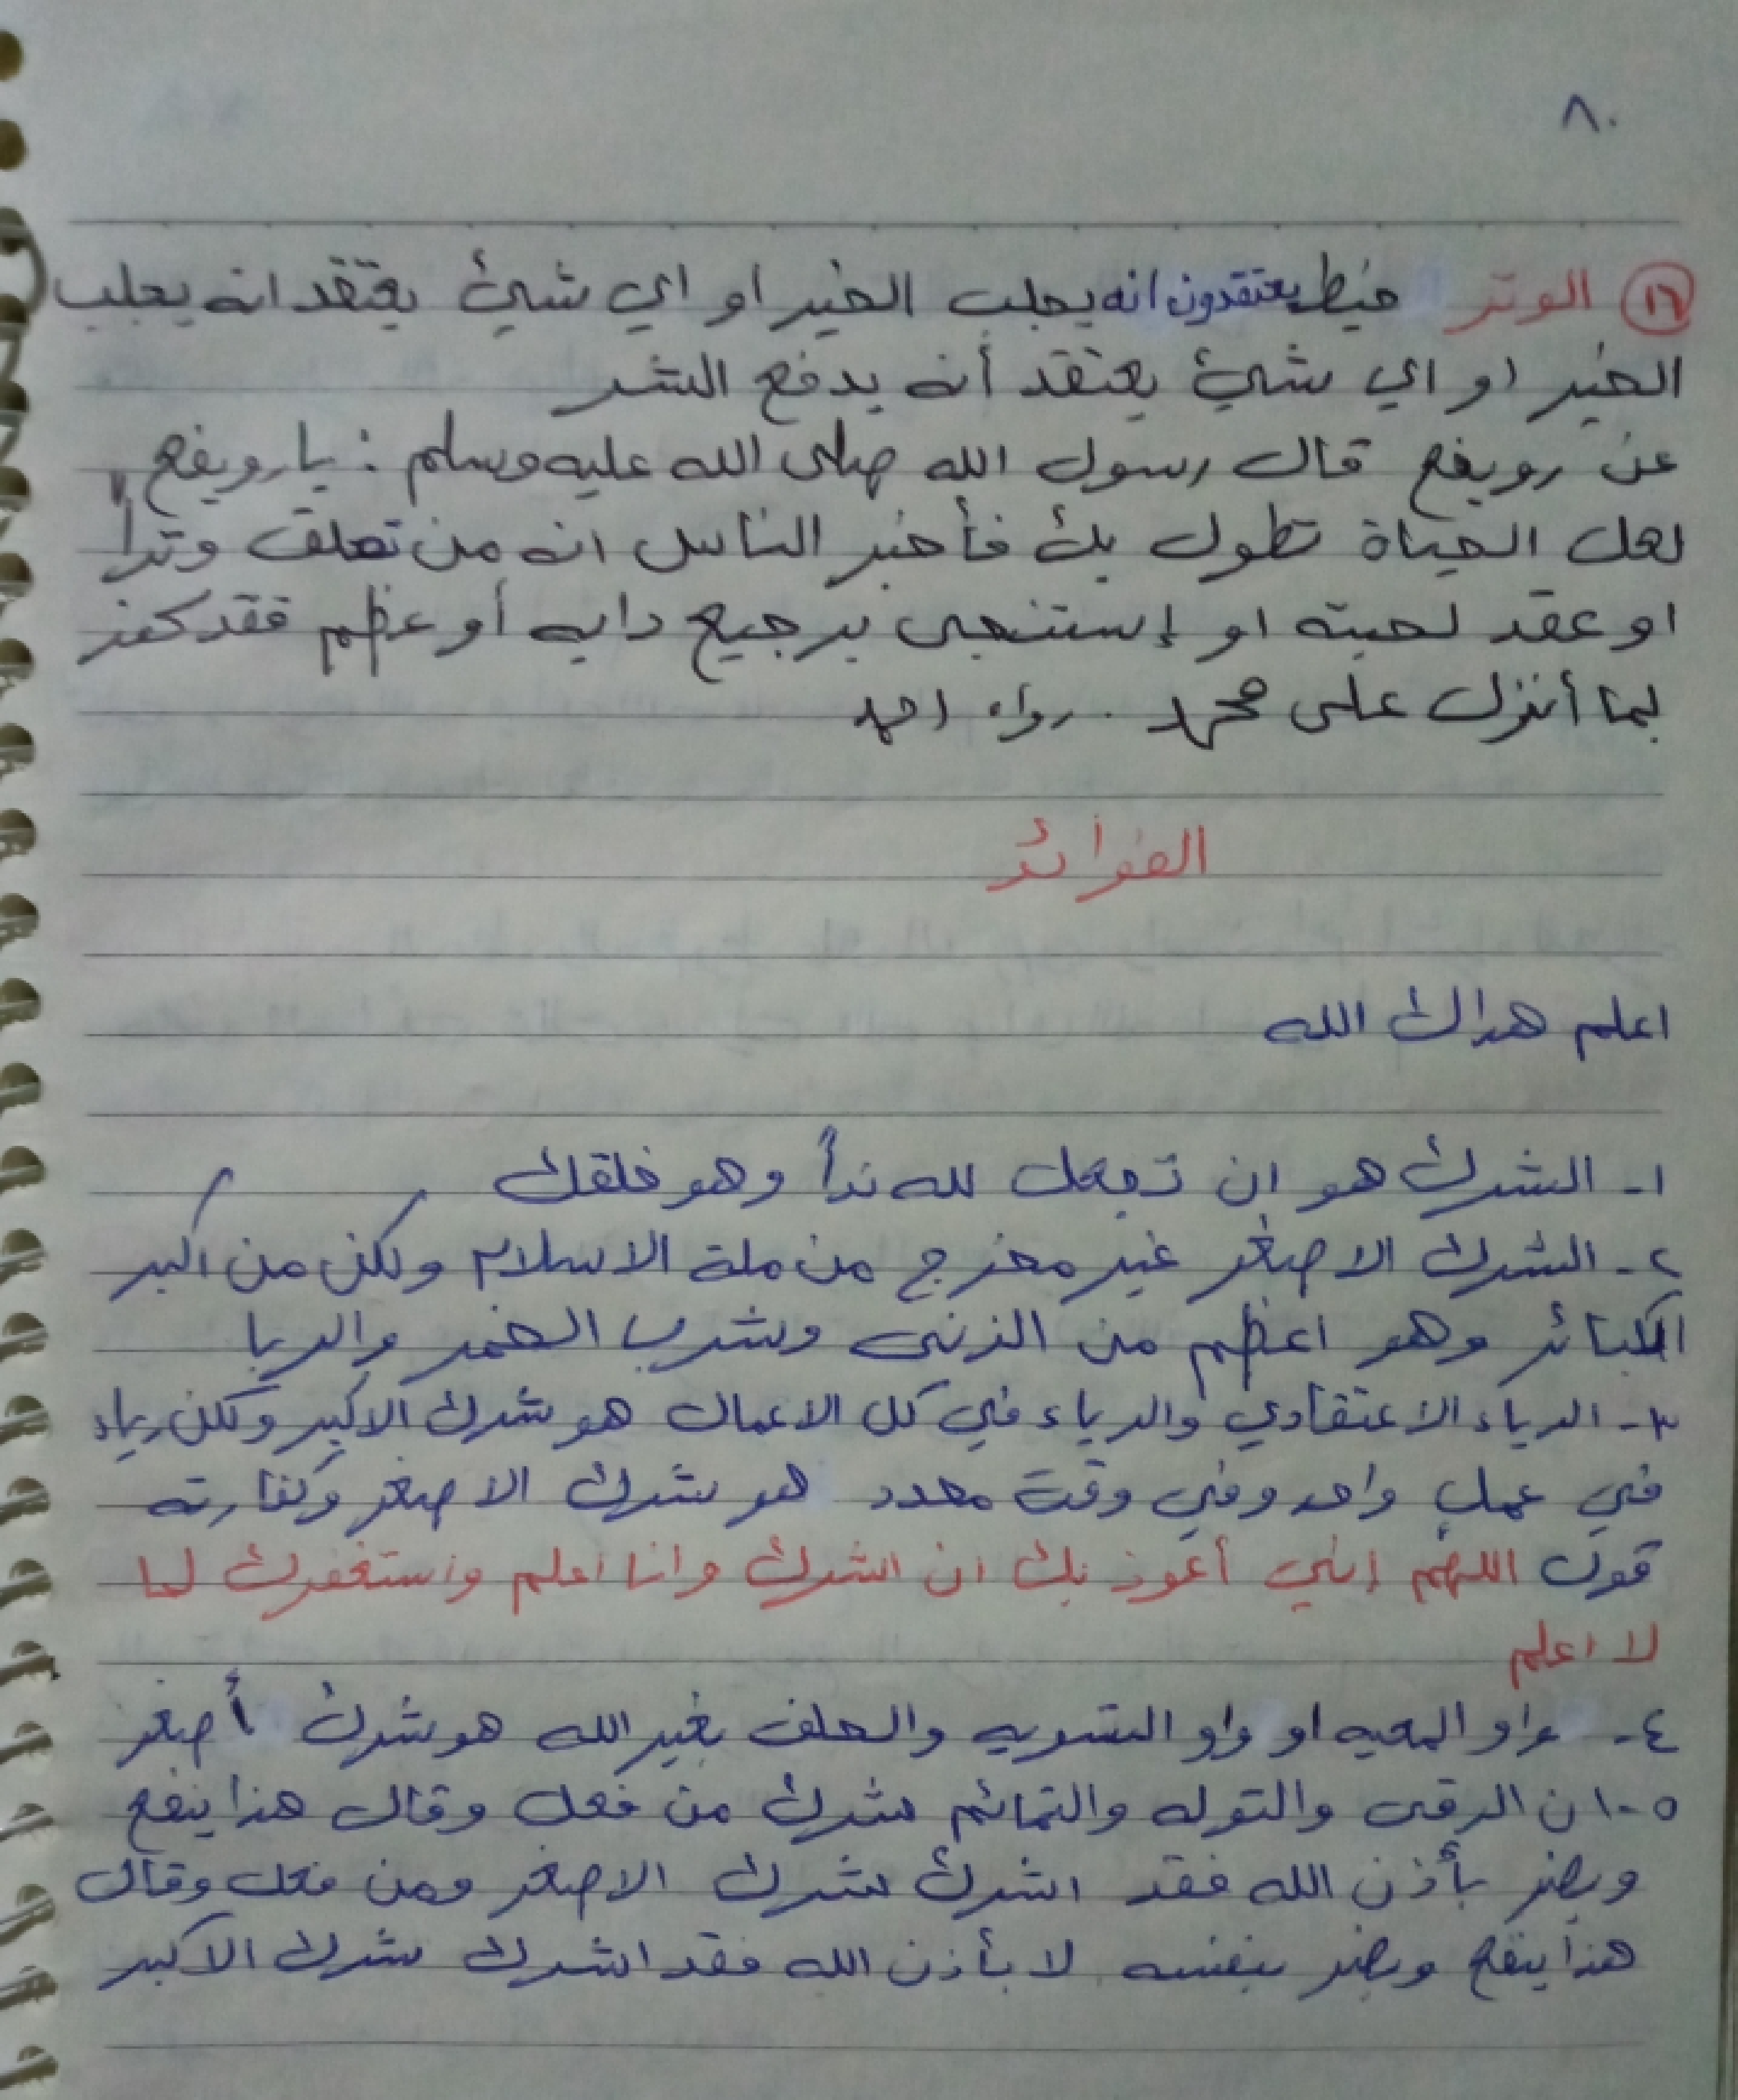 ٨٠
١٦ الوتر خيط يعتقدون انه يجلب الخير او اي شيئ يعتقد انه يجلب
الخير او اي شيئ يعتقد أنه يدفع الشر
عن رويفع قال رسول الله صلى الله عليه وسلم : يا رويفع
لعل الحياة تطول بك فأخبر الناس انه من تعلق وتراً
او عقد لحيته او إستنجى برجيع دابه أو عظم فقد كفر
بما أنزل على محمد . رواه احمد
الفوائد
اعلم هداك الله
١- الشرك هو ان تجعل لله نداً وهو خلقك
٢- الشرك الاصغر غير مخرج من ملة الاسلام ولكن من اكبر
الكبائر وهو اعظم من الزنى وشرب الخمر والربا
٣- الرياء الاعتقادي والرياء في كل الاعمال هو شرك الاكبر ولكن رياء
في عمل واحد وفي وقت محدد هو شرك الاصغر وكفارته
قول اللهم إني أعوذ بك ان اشرك وانا اعلم واستغفرك لما
لا اعلم
٤- واو المعيه او واو التسويه والحلف بغير الله هو شرك أصغر
٥- ان الرقى والتوله والتمائم شرك من فعل وقال هذا ينفع
ويضر بأذن الله فقد اشرك شرك الاصغر ومن فعل وقال
هذا ينفع ويضر بنفسه لا بأذن الله فقد اشرك شرك الاكبر